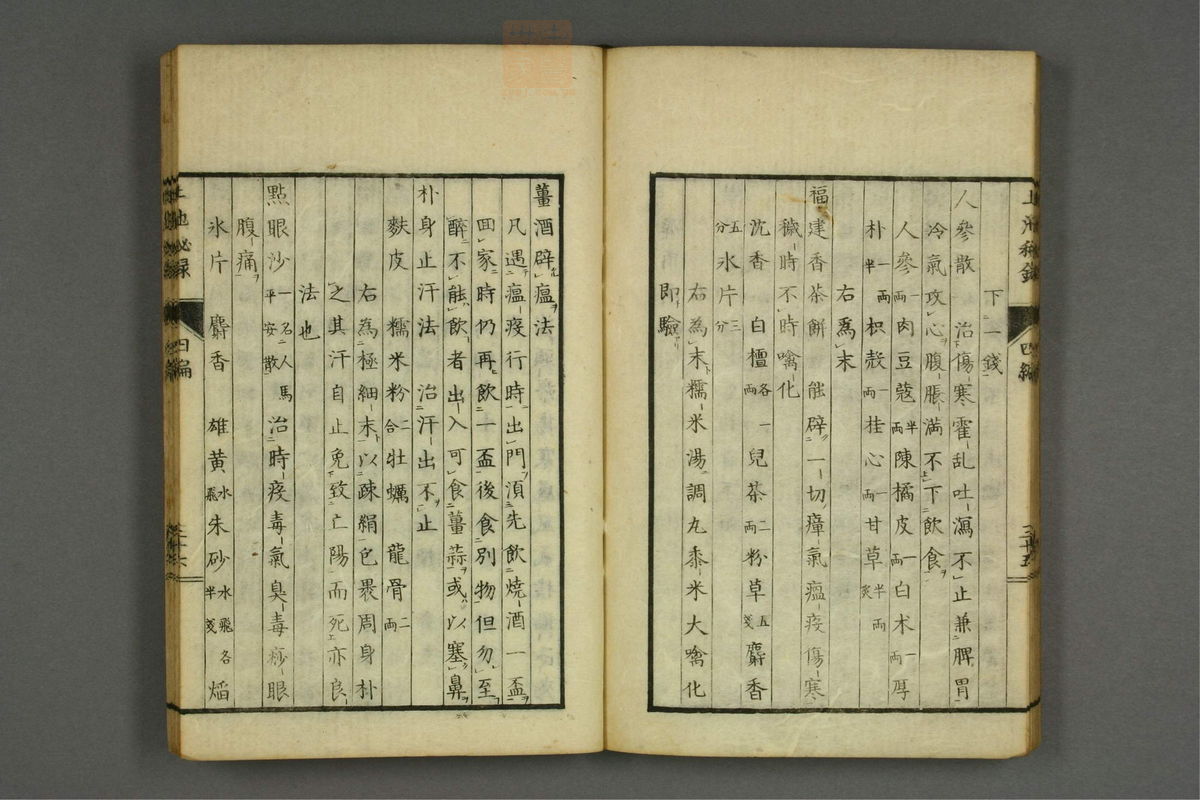 下一錢
人參散 治傷寒霍乱吐瀉不止兼脾胃
冷氣攻心腹脹滿不下飲食
人參一兩肉豆蔻半兩陳橘皮一兩白朮一兩厚
朴一兩半枳殼一兩桂心一兩甘草半兩炙
右爲末
福建香茶餅 能辟一切瘴氣瘟疫傷寒
穢時不時噙化
沈香 白檀各一兩 兒茶二兩粉草五戔麝香
五分氷片三分
右為末糯米湯調丸黍米大噙化
即驗
薑酒辟瘟法
凡遇瘟疫行時出門湏先飲燒酒一盃
囬家時仍再飲一盃後食別物但勿至
醉不能飲者出入可食薑蒜或以塞鼻
朴身止汗法 治汗出不止
麩皮 糯米粉二合牡蠣 龍骨二兩
右為極細末以疎絹包裹周身朴
之其汗自止免致亡陽而死亦良
法也
點眼沙一名人馬平安散 治時疫毒氣臭毒痧眼
腹痛
氷片 麝香 雄黄水飛朱砂水飛各半戔焰
上池秘録
四編